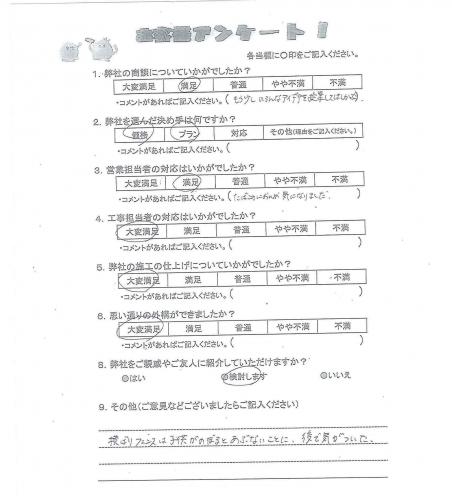 お客様アンケート！
各当欄に〇印をご記入ください。
1. 弊社の商談についていかがでしたか？
大変満足 満足 普通 やや不満 不満
・コメントがあればご記入ください。( もう少しいろんなアイデアを提案してほしかった )
2. 弊社を選んだ決め手は何ですか？
価格 プラン 対応 その他(理由をご記入ください。)
・コメントがあればご記入ください。( )
3. 営業担当者の対応はいかがでしたか？
大変満足 満足 普通 やや不満 不満
・コメントがあればご記入ください。( たばこのにおいが気になりました. )
4. 工事担当者の対応はいかがでしたか？
大変満足 満足 普通 やや不満 不満
・コメントがあればご記入ください。( )
5. 弊社の施工の仕上げについていかがでしたか？
大変満足 満足 普通 やや不満 不満
・コメントがあればご記入ください。( )
6. 思い通りの外構ができましたか？
大変満足 満足 普通 やや不満 不満
・コメントがあればご記入ください。( )
8. 弊社をご親戚やご友人に紹介していただけますか？
◎はい ◎検討します ◎いいえ
9. その他(ご意見などございましたらご記入ください)
横ばりフェンスは子供がのぼるとあぶないことに、後で気がついた.